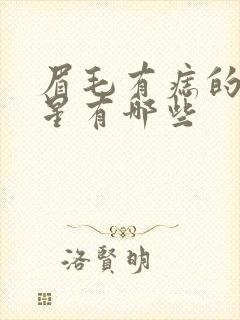 眉毛有痣的
星有哪些
洛賢明